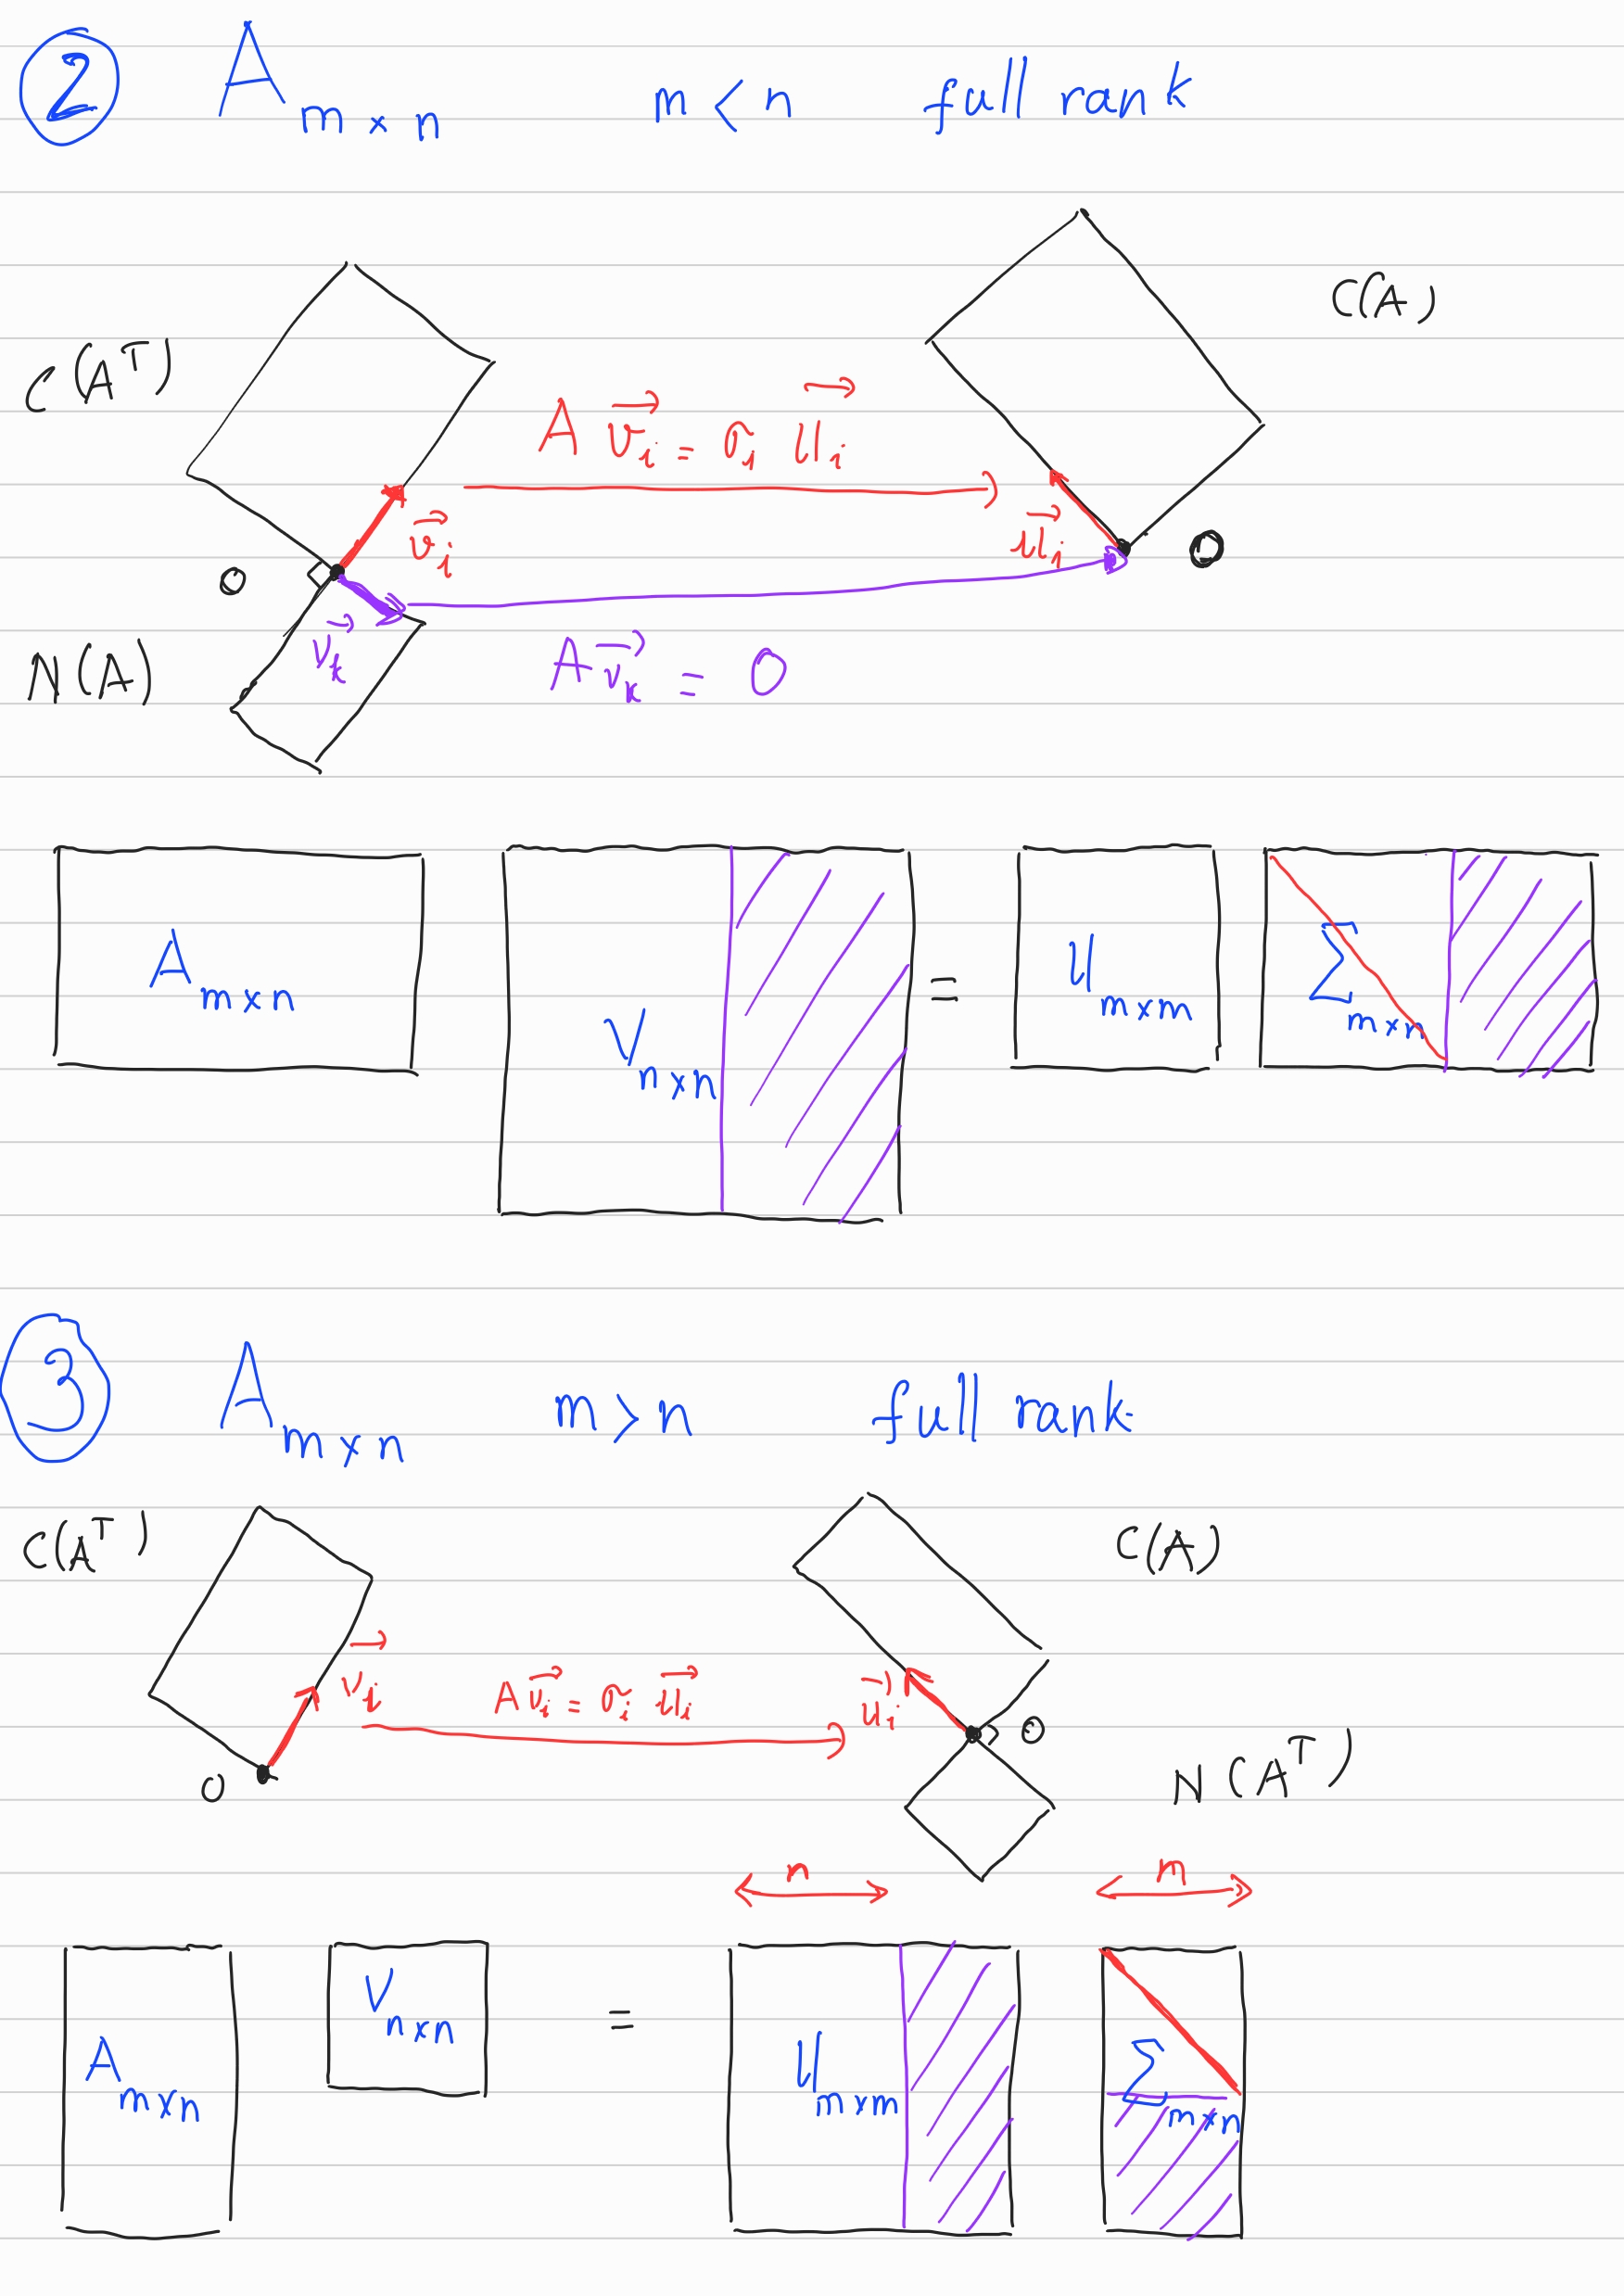 ② A m×n m < n full rank
C(Aᵀ) C(A)
A v⃗ᵢ = σᵢ u⃗ᵢ
v⃗ᵢ u⃗ᵢ
0 0
v⃗ₖ
N(A) A v⃗ₖ = 0
A m×n V n×n = U m×m Σ m×n
③ A m×n m > n full rank
C(Aᵀ) C(A)
v⃗ᵢ A v⃗ᵢ = σᵢ u⃗ᵢ u⃗ᵢ
0 0
N(Aᵀ)
n n
A m×n V n×n = U m×m Σ m×n